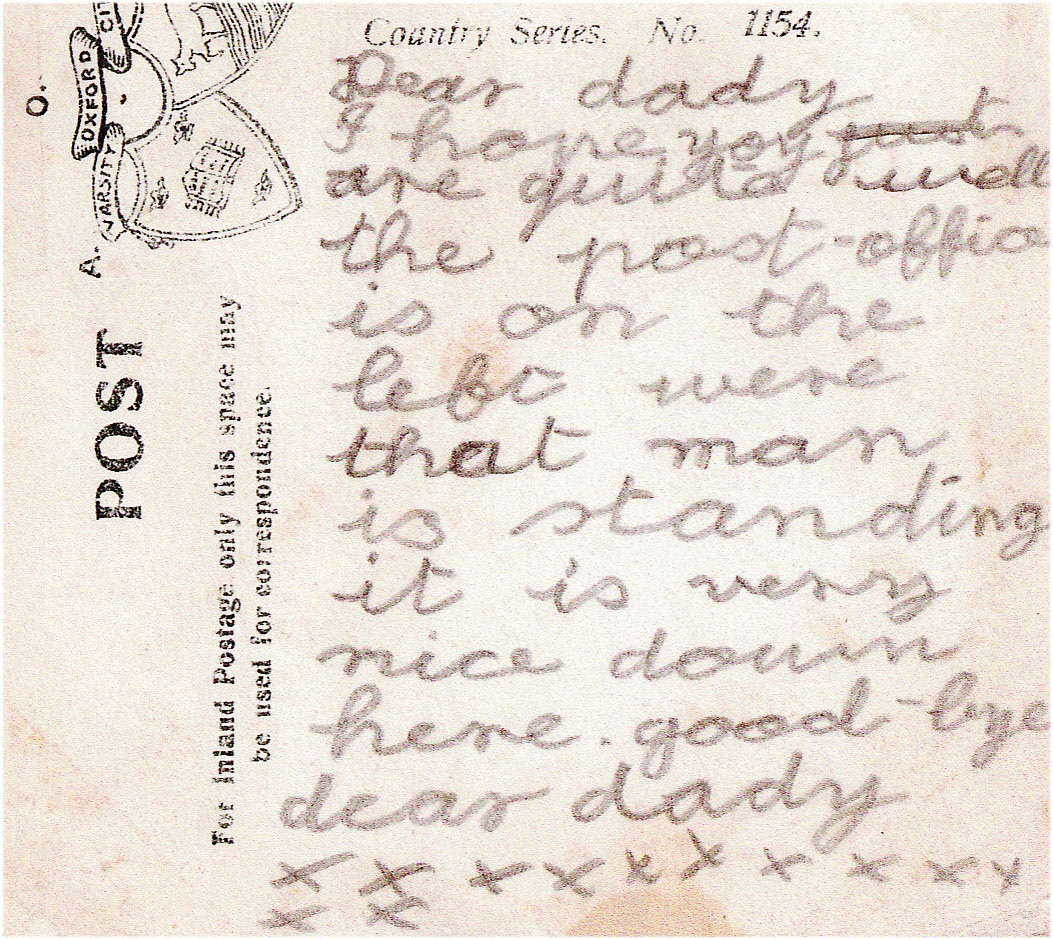 Country Series. No. 1154.
Dear dady
I hope you just
are quite well
the post-offic
is on the
left were
that man
is standing
it is very
nice down
here. good-bye
dear dady
x x x x x x x x x x
x x
O.
OXFORD
VARSITY
CI
A.
POST
For Inland Postage only this space may
be used for correspondence.